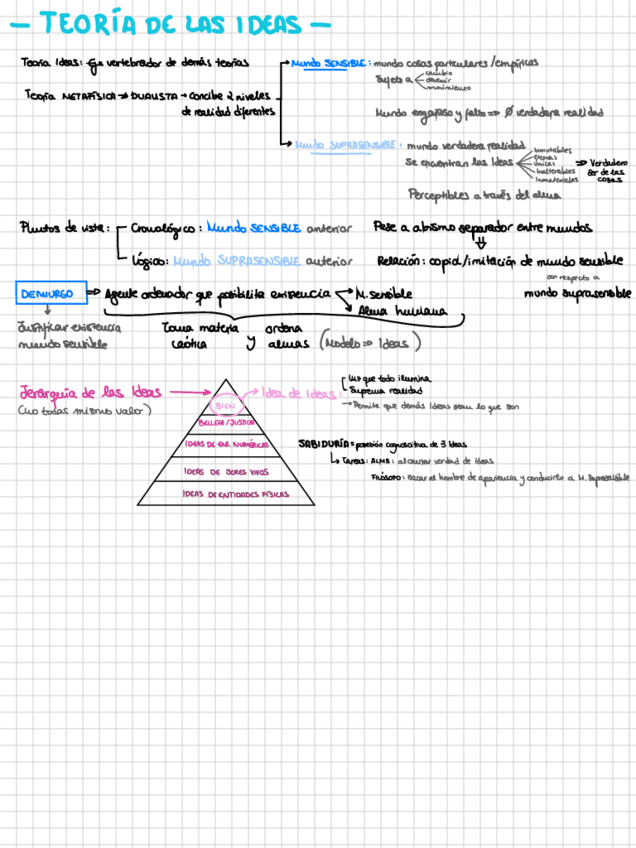 — TEORÍA DE LAS IDEAS —
Teoría Ideas: Eje vertebrador de demás teorías
Teoría METAFÍSICA => DUALISTA -> concibe 2 niveles
de realidad diferentes
Mundo SENSIBLE: mundo cosas particulares/empíricas
Sujeto a
cambio
devenir
movimiento
Mundo engañoso y falso => Ø verdadera realidad
Mundo SUPRASENSIBLE: mundo verdadera realidad
Se encuentran las Ideas
Inmutables
Eternas
Únicas
Inalterables
Inmateriales
=> Verdadero
Ser de las
cosas
Perceptibles a través del alma
Puntos de vista:
Cronológico: Mundo SENSIBLE anterior
Lógico: Mundo SUPRASENSIBLE anterior
Pese a abismo separador entre mundos
Relación: copia/imitación de mundo sensible
con respecto a
mundo suprasensible
DEMIURGO => Agente ordenador que posibilita existencia
M. sensible
Alma humana
Justificar existencia
mundo sensible
Toma materia
caótica
y
ordena
almas
(Modelo => Ideas)
Jerarquía de las Ideas
(no todas mismo valor)
BIEN
BELLEZA/JUSTICIA
IDEAS DE ENT. NUMÉRICAS
IDEAS DE SERES VIVOS
IDEAS DE ENTIDADES FÍSICAS
Idea de Ideas:
Luz que todo ilumina
Suprema realidad
-> Permite que demás Ideas sean lo que son
SABIDURÍA = posesión cognoscitiva de 3 Ideas
Tareas: ALMA: alcanzar verdad de Ideas
FILÓSOFO: sacar al hombre de apariencia y conducirlo a M. Suprasensible